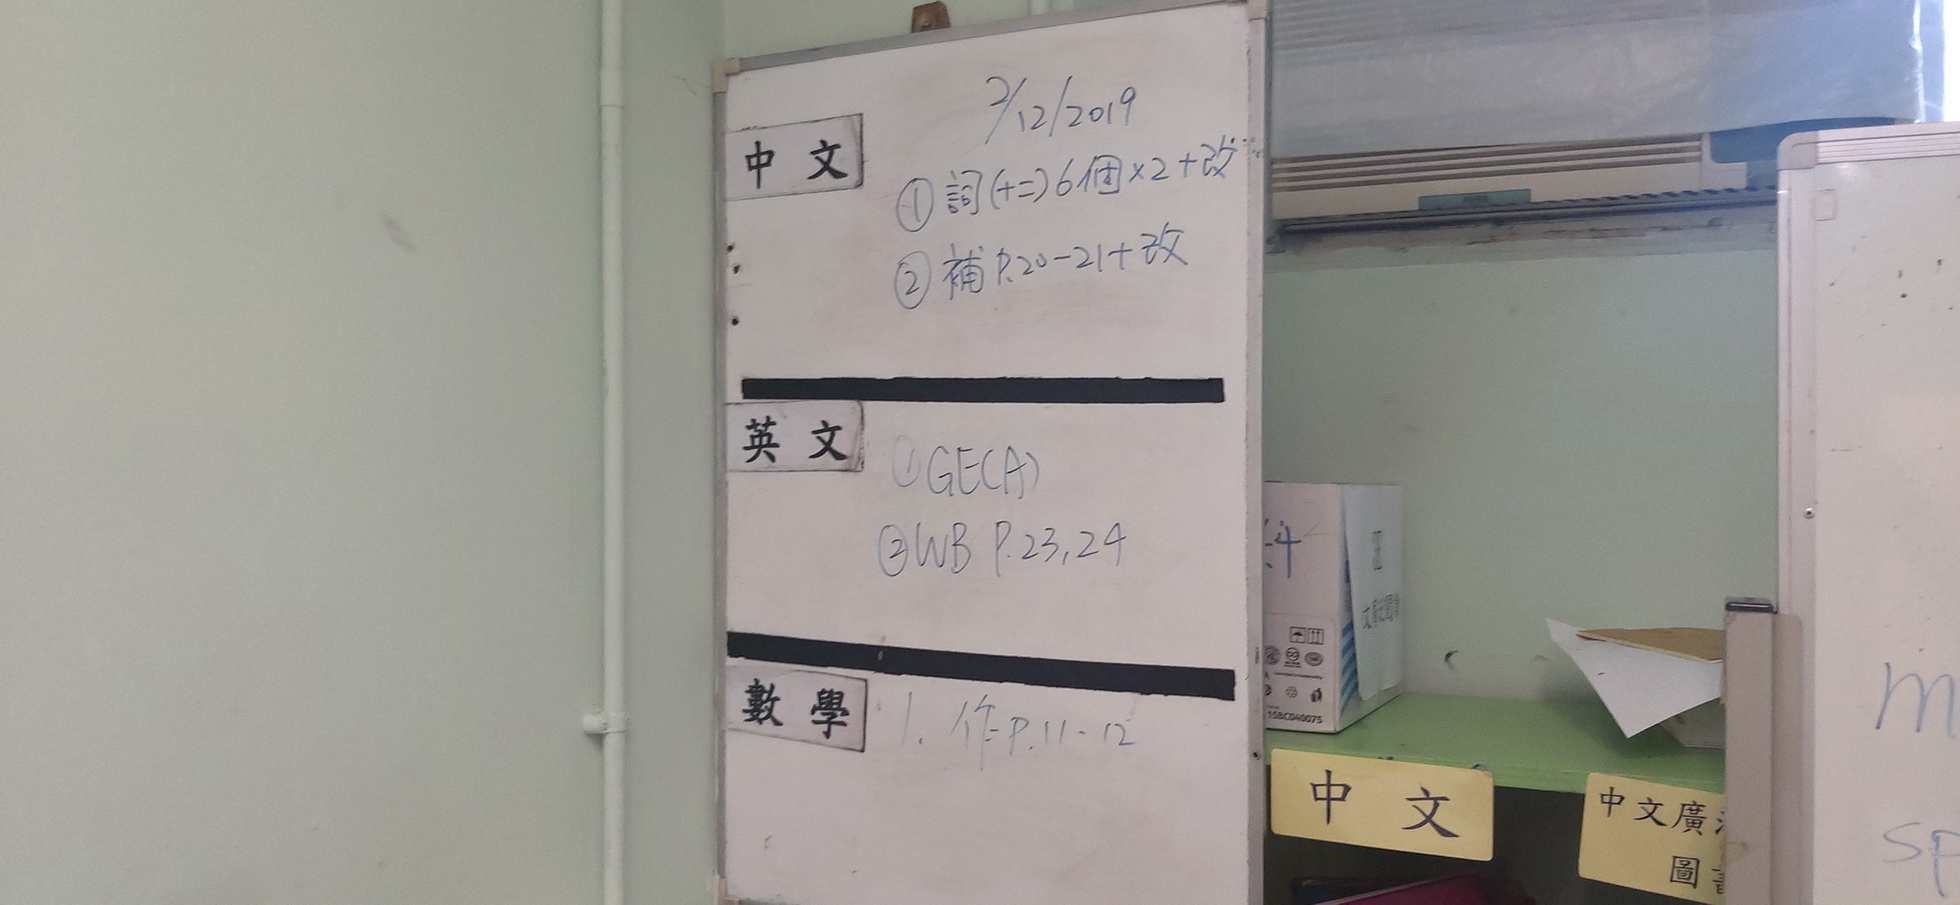 2/12/2019
中文
① 詞(十二)6個×2+改
② 補P.20-21+改
英文
① GE(A)
② WB P.23,24
數學
1. 作P.11-12
15BC040075
中文
中文廣
圖
m
sp